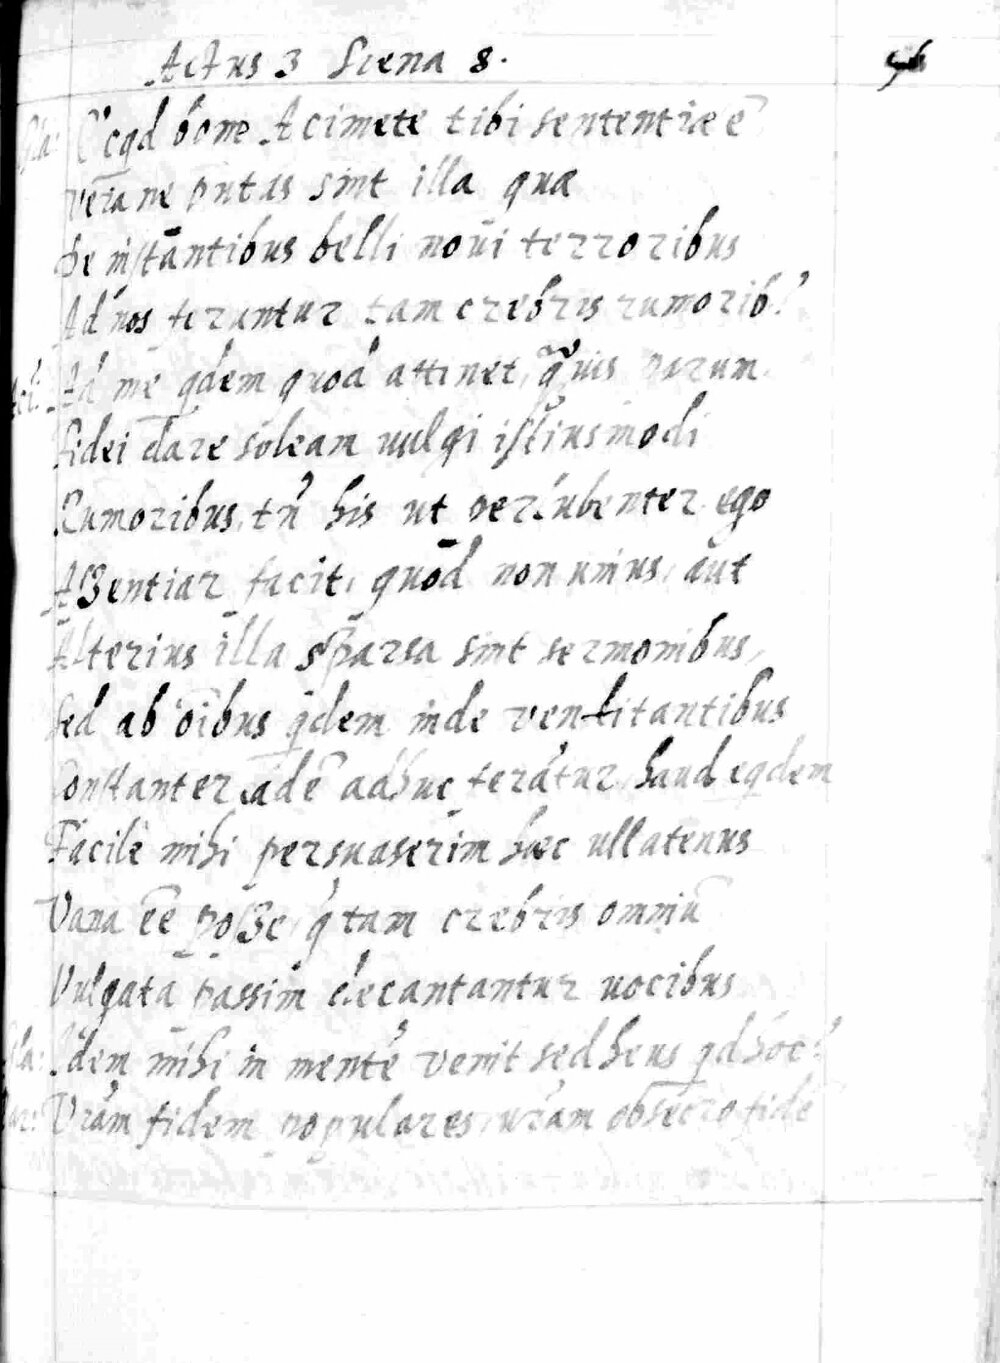 Actus 3 Scena 8.
Ecqd bone Acimete tibi sententiæ ē
verane putas sint illa quæ
De instantibus belli noui terroribus
Ad nos feruntur tam crebris rumorib?
Aci: Ad me qdem quod attinet, q̃uis parum
fidei dare soleam uulgi istiusmodi
Rumoribus, tn̄ his ut perlubenter ego
Aßentiar facit, quod non unius, aut
Alterius illa sparsa sint sermonibus,
sed ab oībus qdem inde ventitantibus
Constanter eadē adhuc ferātur, haud eqdem
Facilè mihi persuaserim hæc ullatenus
Vana ēe poße, q̃ tam crebris omniū
Vulgata passim decantantur uocibus
Idem mihi in mentē venit sed heus qd hoc?
Vrām fidem populares, urām obsecro fidē